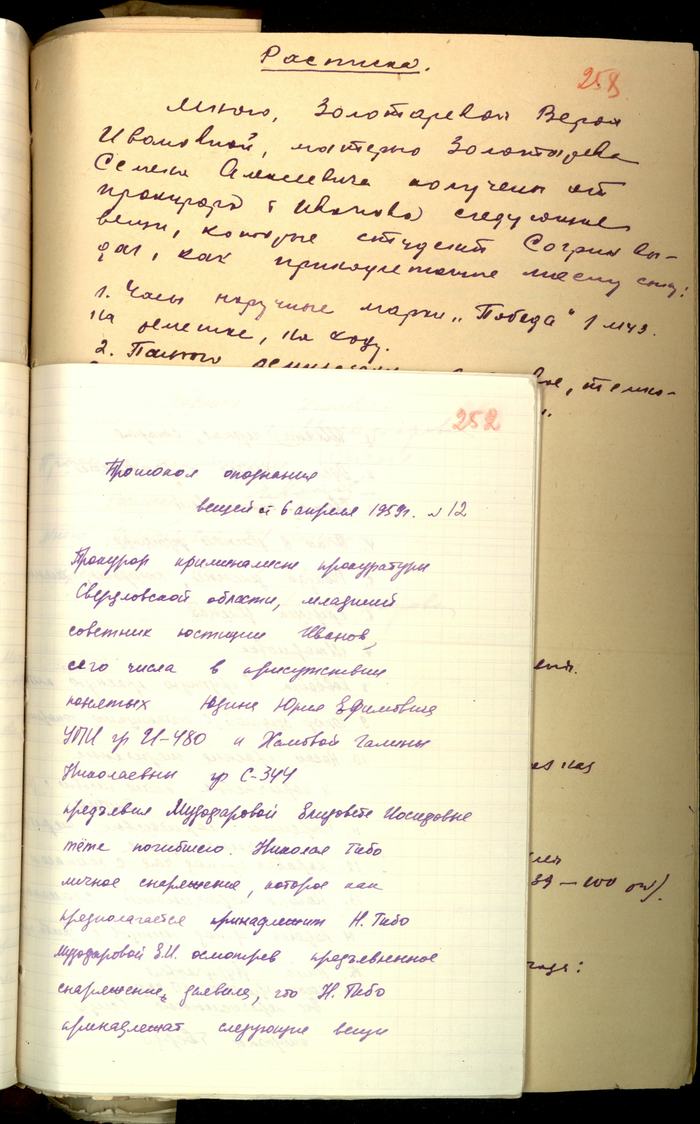 Расписка.
258
Мною, Золотаревой Верой
Ивановной, матерью Золотарева
Семена Алексеевича получены от
прокурора т Иванова следующие
вещи, которые студент Согрин вы-
дал, как принадлежащие моему сыну:
1. Часы наручные марки „Победа" 1 мчз.
на ремешке, на ходу.
2.
темно-
252
Протокол опознания
вещей от 6 апреля 1959г. № 12
Прокурор криминалист прокуратуры
Свердловской области, младший
советник юстиции Иванов,
сего числа в присутствии
понятых Юдина Юрия Ефимовича
УПИ гр И-480 и Хамовой Галины
Николаевны гр С-344
предъявил Мизодаровой Елизовете Иосифовне
тёте погибшего. Николая Тибо
личное снаряжение, которое как
предполагается принадлежит Н. Тибо
Мизодаровой Е.И. осмотрев предъявленное
снаряжение, заявила, что Н. Тибо
принадлежат следующие вещи
39 — 100